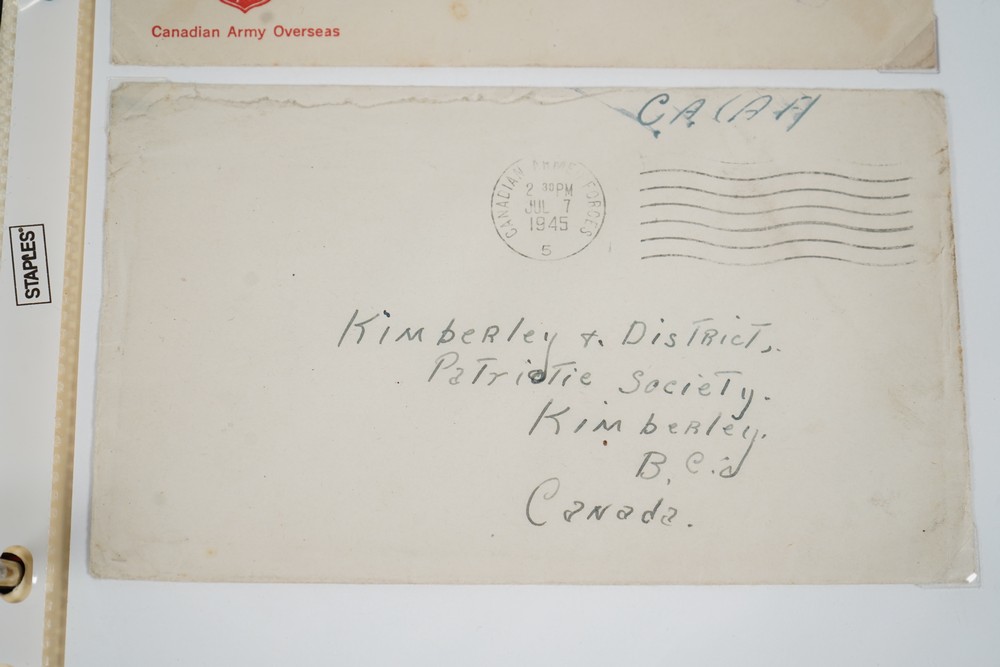 Canadian Army Overseas
CA(AF)
CANADIAN ARMED FORCES
2 30PM
JUL 7
1945
5
STAPLES
Kimberley & District,
Patriotic Society.
Kimberley.
B.C.
Canada.